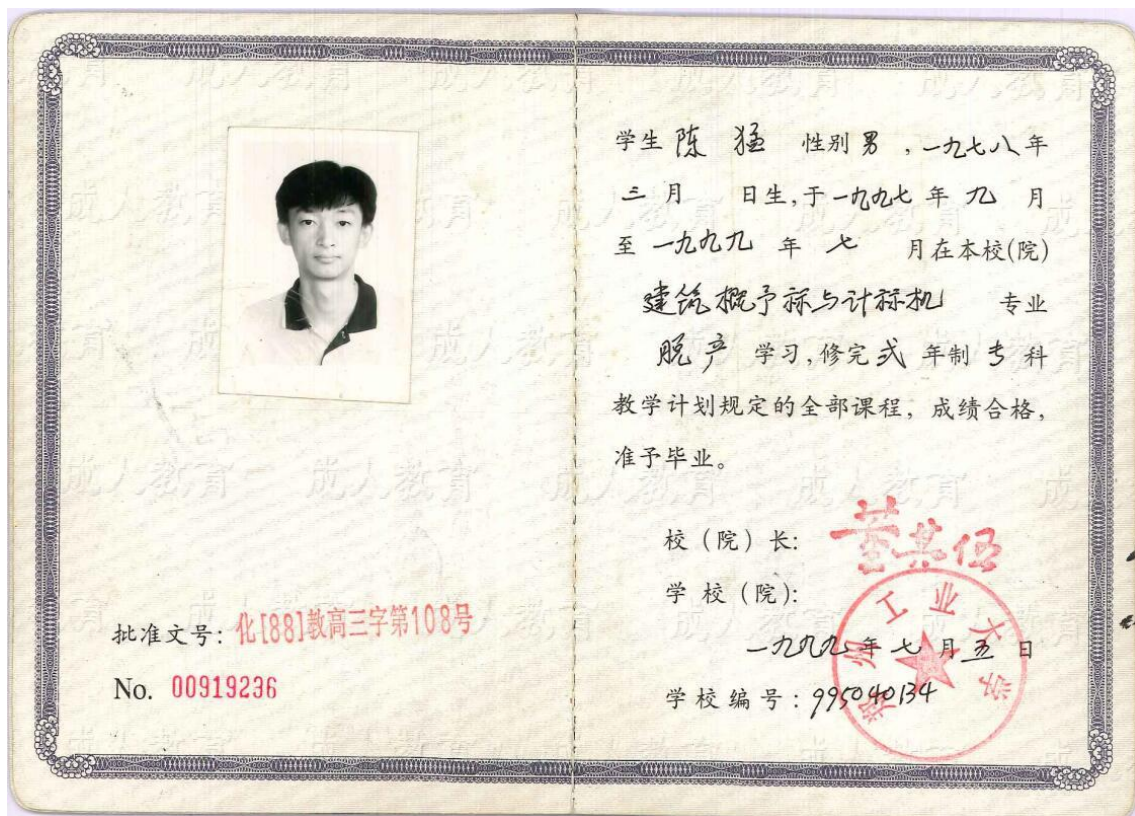 批准文号：化[88]教高三字第108号
No. 00919236
学生 陈猛 性别 男，一九七八年
三月 日生，于一九九七年九月
至一九九九年七月在本校(院)
建筑概予祘与计祘机 专业
脱产 学习，修完弍年制专科
教学计划规定的全部课程，成绩合格，
准予毕业。
校（院）长： 董其伍
学校（院）：
郑州工业大学
一九九九年七月五日
学校编号：995040134
成人教育